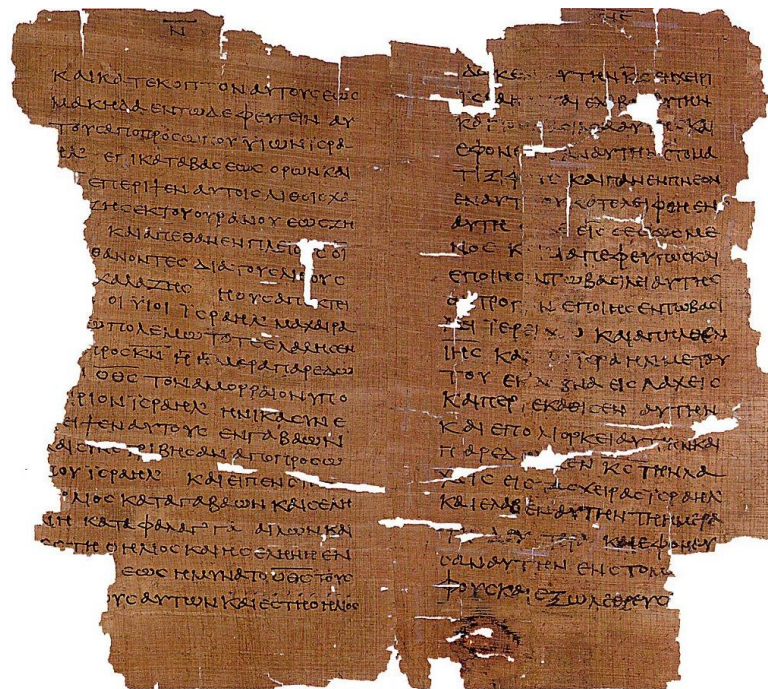 Ν
ΚΑΙΚΑΤΕΚΟΠΤΟΝΑΥΤΟΥϹΕΩϹ
ΜΑΚΗΔΑΕΝΤΩΔΕΦΕΥΓΕΙΝΑΥ
ΤΟΥϹΑΠΟΠΡΟϹΩΠΟΥΥΙΩΝΙϹΡΑ
ΗΛ ΕΠΙΚΑΤΑΒΑϹΕΩϹΟΡΩΝΚΑΙ
ΕΠΕΡΙΨΕΝΑΥΤΟΙϹΛΙΘΟΙϹΧΑ
ΖΗϹΕΚΤΟΥΟΥΡΑΝΟΥΕΩϹΖΗ
ΚΑΙΑΠΕΘΑΝΕΝΠΛΕΙΟΥϹΟΙ
ΘΑΝΟΝΤΕϹΔΙΑΤΟΥϹΛΙΘΟΥϹ
ΧΑΛΑΖΗϹ ΗΟΥϹΑΠΕΚΤΕΙ
ΟΙΥΙΟΙ ΙϹΡΑΗΛ ΜΑΧΑΙΡΑ
ΩΠΟΛΕΜΩ ΤΟΤΕΕΛΑΛΗϹΕΝ
ΠΡΟϹΚΝ Η ΗΜΕΡΑΠΑΡΕΔΩ
ΟΘϹ ΤΟΝΑΜΟΡΡΑΙΟΝΥΠΟ
ΙΡΙΟΝΙϹΡΑΗΛ ΗΝΙΚΑϹΥΝΕ
ΕΙΨΕΝΑΥΤΟΥϹ ΕΝΓΑΒΑΩΝ
ΑΙϹΥΝΕΤΡΙΒΗϹΑΝΑΠΟΠΡΟϹΩ
ΟΥΙϹΡΑΗΛ ΚΑΙΕΙΠΕΝ
ΛΙΟϹΚΑΤΑΓΑΒΑΩΝ ΚΑΙϹΕΛΗ
ΝΗ ΚΑΤΑΦΑΛΑΓΓΑ ΑΙΛΩΝΚΑΙ
ΕϹΤΗΟΗΛΙΟϹΚΑΙΗϹΕΛΗΝΗΕΝ
ΕΩϹΗΜΥΝΑΤΟΟΘϹΤΟΥϹ
ΟΥϹΑΥΤΩΝΚΑΙΕϹΤΗΟΗΛΙΟϹ
ΔΩΚΕΝ ΑΥΤΗΝ ΚϹ ΕΝΧΕΙΡΙ
ΙϹΡΑΗΛ ΚΑΙΕΛΑΒΟΝΑΥΤΗΝ
ΚΑΙ
ΕΦΟΝΕΥϹΑΝΑΥΤΗΝΕΝϹΤΟΜΑ
ΤΙΞΙΦΟΥϹ ΚΑΙΠΑΝΕΝΠΝΕΟΝ
ΕΝΑΥΤΗ ΟΥΚΑΤΕΛΕΙΦΘΗΕΝ
ΑΥΤΗ ΟΥΔΕΙϹϹΕϹΩϹΜΕ
ΝΟϹ ΚΑΙΔΙΑΠΕΦΕΥΓΩϹΚΑΙ
ΕΠΟΙΗϹΑΝΤΩΒΑϹΙΛΕΙΑΥΤΗϹ
ΟΝΤΡΟΠΟΝ ΕΠΟΙΗϹΕΝΤΩΒΑϹΙ
ΛΕΙ ΙΕΡΕΙΧΩ ΚΑΙΑΠΗΛΘΕΝ
ΙΗϹ ΚΑΙ ΙϹΡΑΗΛΜΕΤΑΥ
ΤΟΥ ΕΚΛΕΒΝΑ ΕΙϹΛΑΧΕΙϹ
ΚΑΙΠΕΡΙΕΚΑΘΙϹΕΝ ΑΥΤΗΝ
ΚΑΙΕΠΟΛΙΟΡΚΕΙΑΥΤΗΝΚΑΙ
ΠΑΡΕΔΩΚΕΝ ΚϹ ΤΗΝΛΑ
ΧΕΙϹ ΕΙϹ ΤΑϹΧΕΙΡΑϹΙϹΡΑΗΛ
ΚΑΙΕΛΑΒΕΝΑΥΤΗΝ ΤΗΗΜΕΡΑ
ΤΗΔΕΥΤΕΡΑ ΚΑΙΕΦΟΝΕΥ
ϹΑΝΑΥΤΗΝ ΕΝϹΤΟΜ
ΦΟΥϹΚΑΙΕΞΩΛΕΘΡΕΥϹ